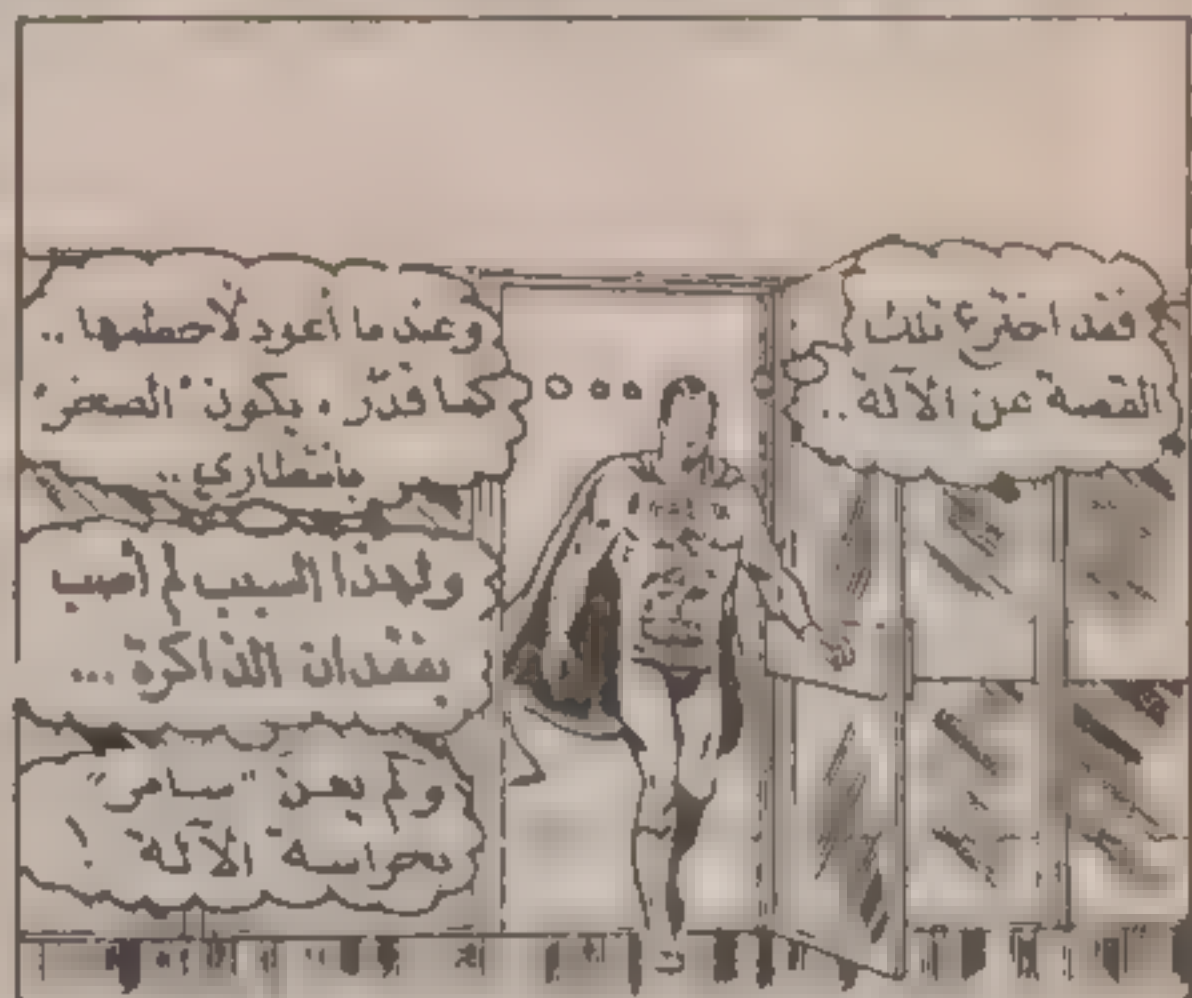 فقد اخترع تلك
القصة عن الآلة ..
وعندما أعود لأحطمها ..
كما قدّر ، يكون "الصقر"
بانتظاري ..
ولهذا السبب لم أصب
بفقدان الذاكرة ...
ولم يعن "سامر"
بحراسة الآلة !